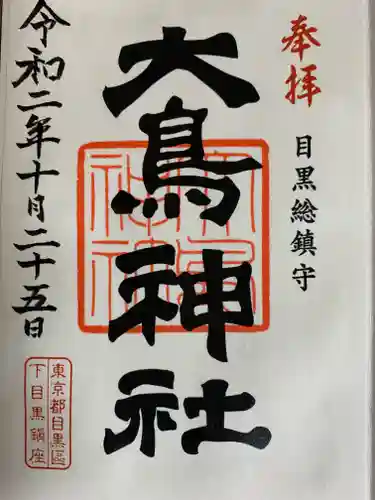 奉拝
目黒総鎮守
大鳥神社
令和二年十月二十五日
大鳥神社
東京都目黒区
下目黒鎮座